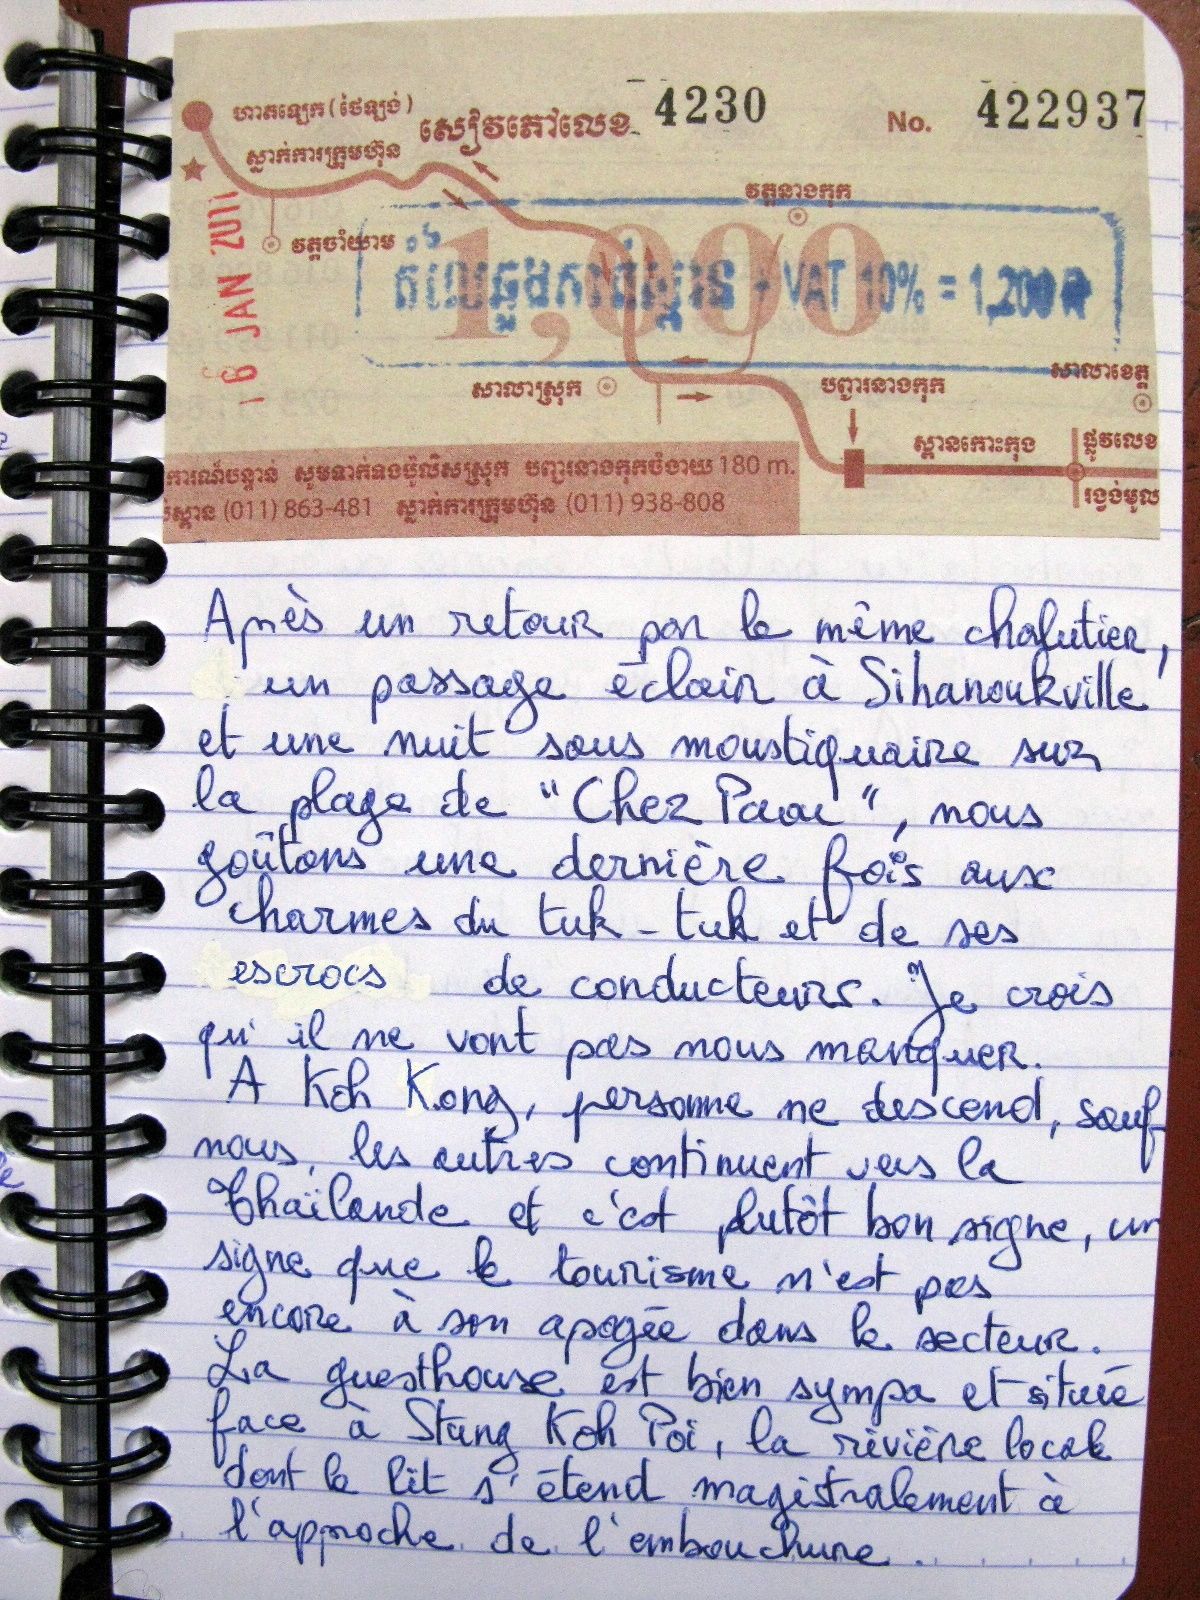 ហាតឡេក (ថៃឡង់)
សៀវភៅលេខ 4230 No. 422937
ស្លាក់ការក្រុមហ៊ុន
វត្តនាងកុក
វត្តចាំយាម
16 JAN 2011
1,000
VAT 10% = 1,200
សាលាស្រុក
បញ្ជារនាងកុក
សាលាខេត្ត
ស្ពានកោះកុង
ផ្លូវលេខ
រង្វង់មូល
ការណ៍បន្ទាន់ សូមទាក់ទងប៉ូលិសស្រុក បញ្ជារនាងកុកចំងាយ 180 m.
ស្ពាន (011) 863-481 ស្លាក់ការក្រុមហ៊ុន (011) 938-808
Après un retour par le même chalutier,
un passage éclair à Sihanoukville
et une nuit sous moustiquaire sur
la plage de "Chez Paou", nous
goûtons une dernière fois aux
charmes du tuk-tuk et de ses
escrocs de conducteurs. Je crois
qu'il ne vont pas nous manquer.
A Koh Kong, personne ne descend, sauf
nous, les autres continuent vers la
Thaïlande et c'est plutôt bon signe, un
signe que le tourisme n'est pas
encore à son apogée dans le secteur.
La guesthouse est bien sympa et située
face à Stung Koh Poi, la rivière locale
dont le lit s'étend magistralement à
l'approche de l'embouchure.